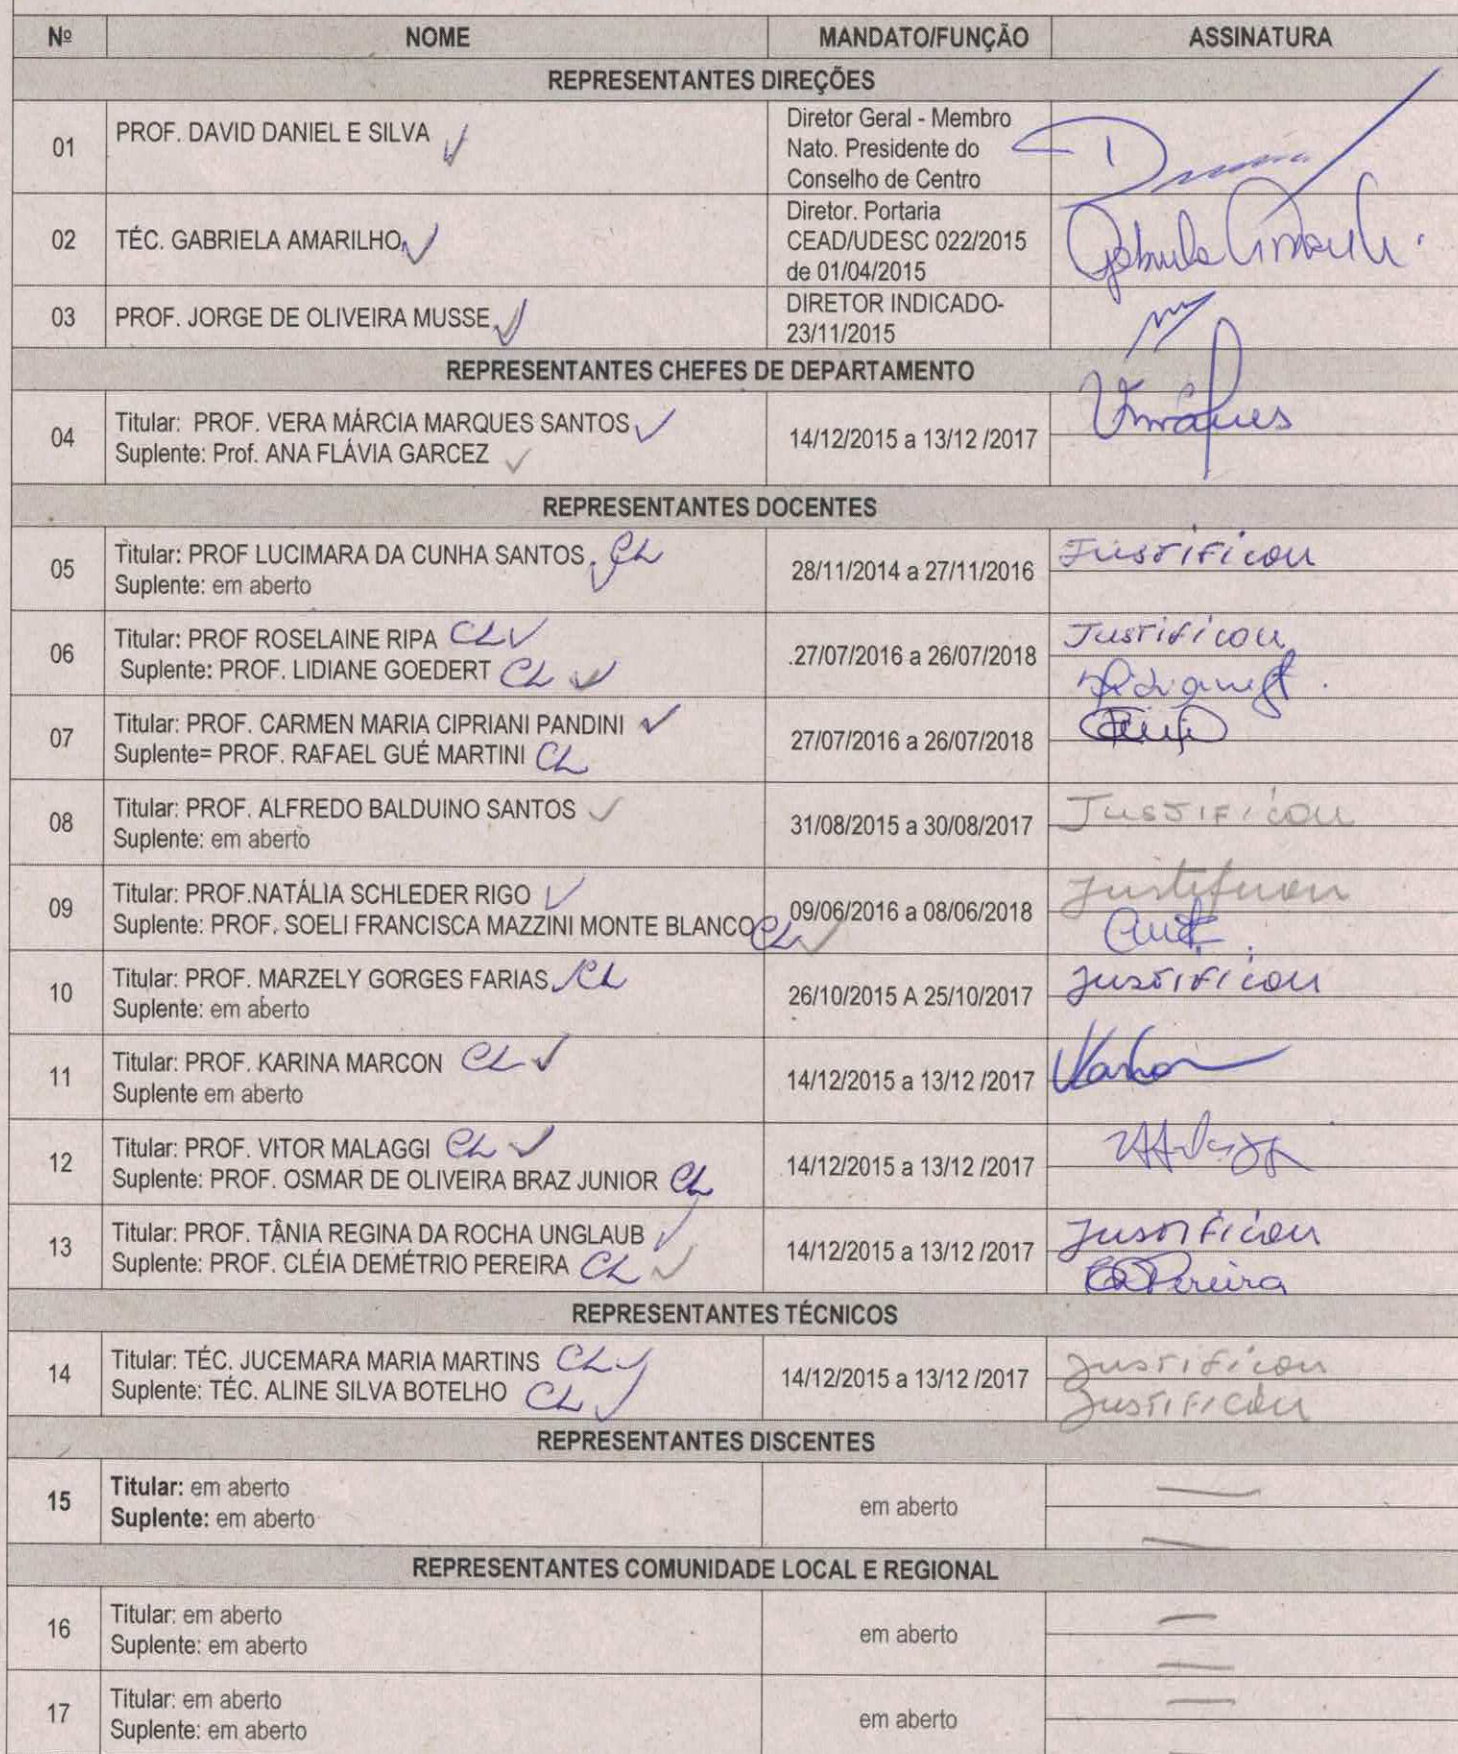 Nº NOME MANDATO/FUNÇÃO ASSINATURA
REPRESENTANTES DIREÇÕES
01 PROF. DAVID DANIEL E SILVA
Diretor Geral - Membro
Nato. Presidente do
Conselho de Centro
02 TÉC. GABRIELA AMARILHO
Diretor. Portaria
CEAD/UDESC 022/2015
de 01/04/2015
03 PROF. JORGE DE OLIVEIRA MUSSE
DIRETOR INDICADO-
23/11/2015
REPRESENTANTES CHEFES DE DEPARTAMENTO
04
Titular: PROF. VERA MÁRCIA MARQUES SANTOS
Suplente: Prof. ANA FLÁVIA GARCEZ
14/12/2015 a 13/12 /2017
REPRESENTANTES DOCENTES
05
Titular: PROF LUCIMARA DA CUNHA SANTOS CL
Suplente: em aberto
28/11/2014 a 27/11/2016
Justificou
06
Titular: PROF ROSELAINE RIPA CL
Suplente: PROF. LIDIANE GOEDERT CL
.27/07/2016 a 26/07/2018
Justificou
07
Titular: PROF. CARMEN MARIA CIPRIANI PANDINI
Suplente= PROF. RAFAEL GUÉ MARTINI CL
27/07/2016 a 26/07/2018
08
Titular: PROF. ALFREDO BALDUINO SANTOS
Suplente: em aberto
31/08/2015 a 30/08/2017
Justificou
09
Titular: PROF.NATÁLIA SCHLEDER RIGO
Suplente: PROF. SOELI FRANCISCA MAZZINI MONTE BLANCO CL
09/06/2016 a 08/06/2018
Justificou
10
Titular: PROF. MARZELY GORGES FARIAS CL
Suplente: em aberto
26/10/2015 A 25/10/2017
Justificou
11
Titular: PROF. KARINA MARCON CL
Suplente em aberto
14/12/2015 a 13/12 /2017
12
Titular: PROF. VITOR MALAGGI CL
Suplente: PROF. OSMAR DE OLIVEIRA BRAZ JUNIOR CL
14/12/2015 a 13/12 /2017
13
Titular: PROF. TÂNIA REGINA DA ROCHA UNGLAUB
Suplente: PROF. CLÉIA DEMÉTRIO PEREIRA CL
14/12/2015 a 13/12 /2017
Justificou
Pereira
REPRESENTANTES TÉCNICOS
14
Titular: TÉC. JUCEMARA MARIA MARTINS CL
Suplente: TÉC. ALINE SILVA BOTELHO CL
14/12/2015 a 13/12 /2017
Justificou
Justificou
REPRESENTANTES DISCENTES
15
Titular: em aberto
Suplente: em aberto
em aberto
REPRESENTANTES COMUNIDADE LOCAL E REGIONAL
16
Titular: em aberto
Suplente: em aberto
em aberto
17
Titular: em aberto
Suplente: em aberto
em aberto